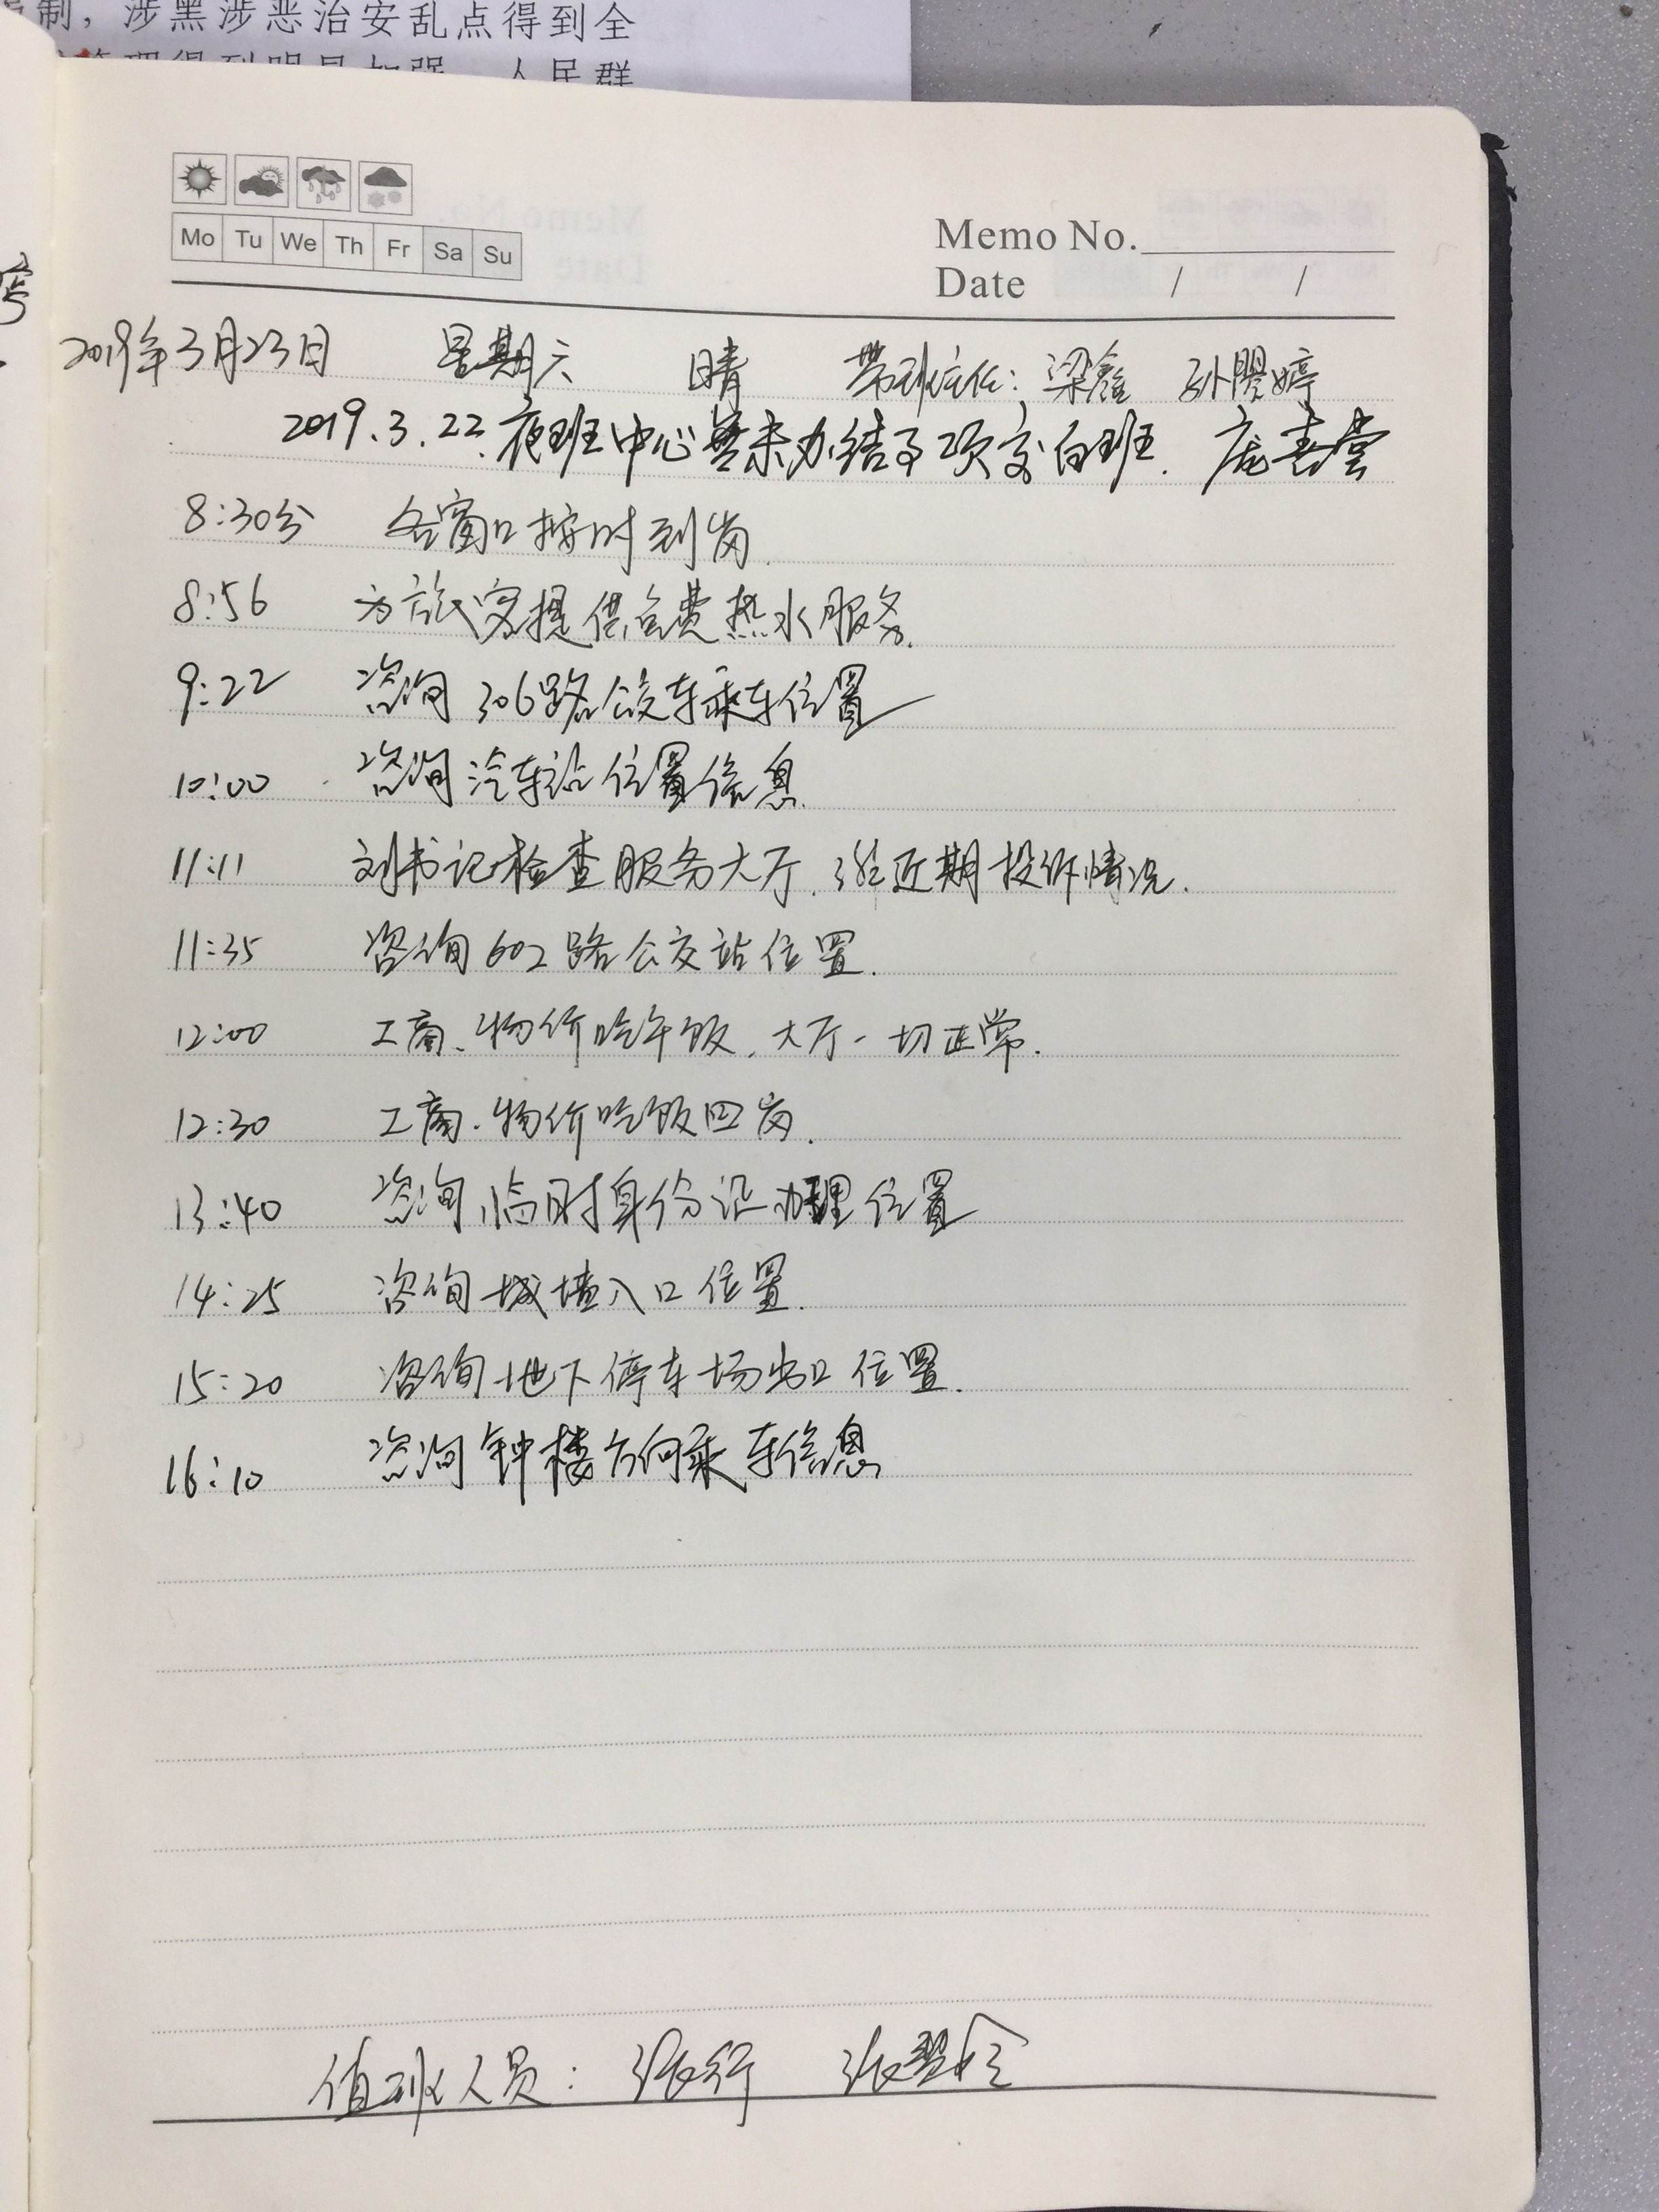 制，涉黑涉恶治安乱点得到全
管理得到明显加强，人民群
Mo Tu We Th Fr Sa Su
Memo No.
Date / /
2019年3月23日 星期六 晴 带班主任：梁鑫 孙婷
2019.3.22.夜班中心无未办结事项交白班.
8:30分 各窗口按时到岗.
8:56 为旅客提供免费热水服务.
9:22 咨询306路公交车乘车位置
10:00 咨询汽车站位置信息.
11:11 刘书记检查服务大厅.近期投诉情况.
11:35 咨询602路公交站位置.
12:00 工商.物价吃午饭.大厅一切正常.
12:30 工商.物价吃饭回岗.
13:40 咨询临时身份证办理位置
14:25 咨询城墙入口位置.
15:20 咨询地下停车场出口位置.
16:10 咨询钟楼方向乘车信息
值班人员：张行 张